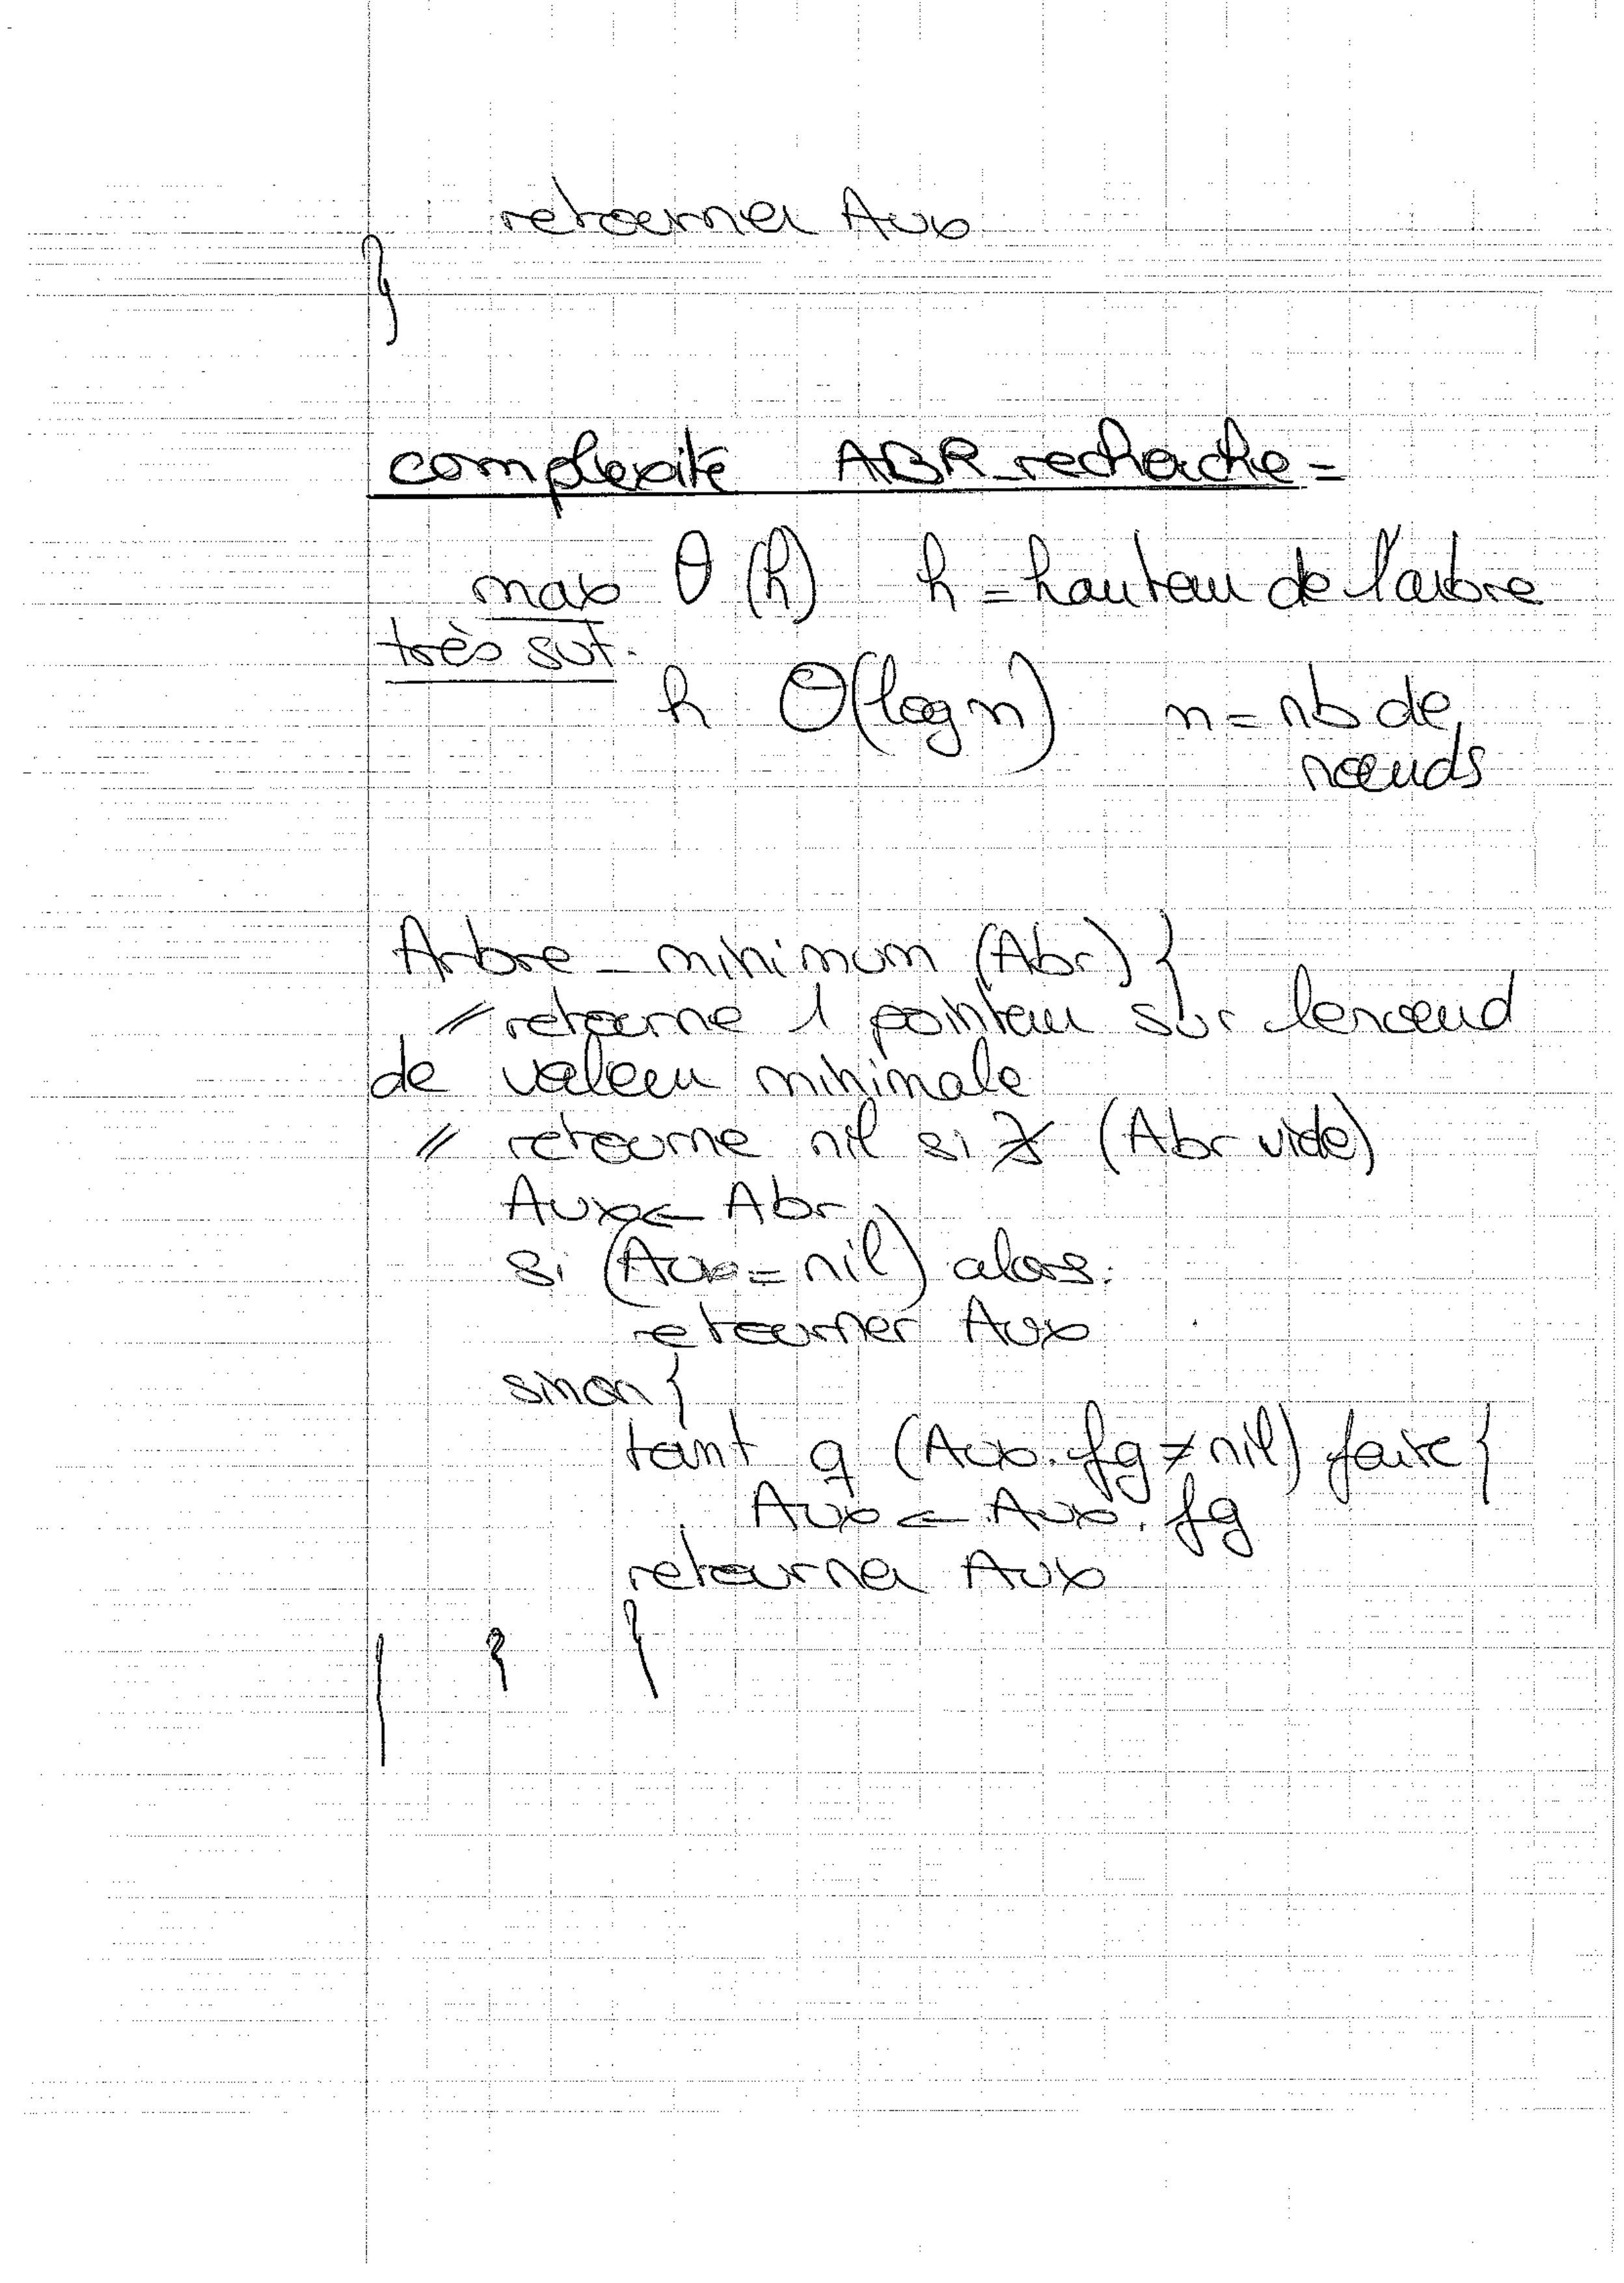 retourner Aux
}
complexité ABR_recherche =
max θ(h) h = hauteur de l'arbre
très svt.
h θ(log n) n = nb de
nœuds
Arbre_minimum (Abr) {
// retourne 1 pointeur sur lenoeud
de valeur minimale
// retourne nil si ∄ (Abr vide)
Aux ← Abr
si (Aux = nil) alors
retourner Aux
sinon {
tant q (Aux.fg ≠ nil) faire {
Aux ← Aux.fg
retourner Aux
} } }